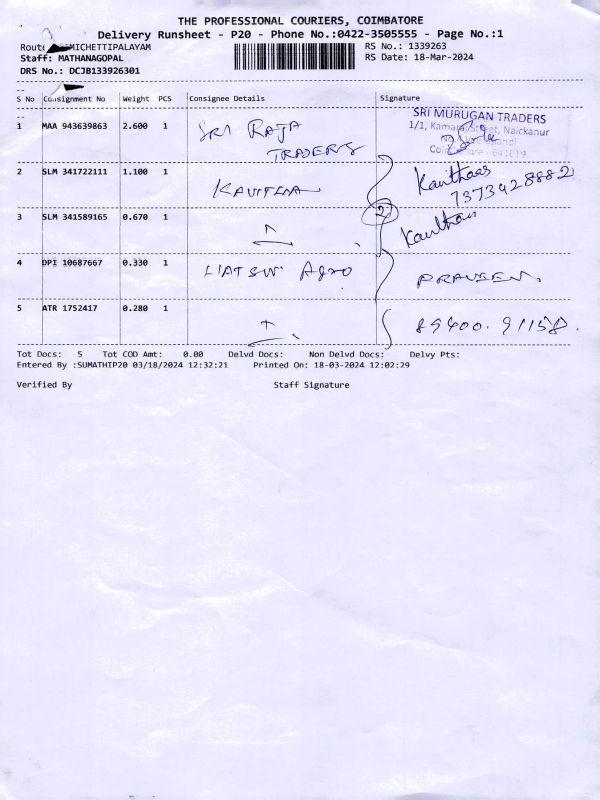 THE PROFESSIONAL COURIERS, COIMBATORE
Delivery Runsheet - P20 - Phone No.:0422-3505555 - Page No.:1
MICHETTIPALAYAM
RS No.: 1339263
Staff: MATHANAGOPAL
RS Date: 18-Mar-2024
DRS No.: DCJB133926301
S No Consignment No Weight PCS Consignee Details Signature
1 MAA 943639863 2.600 1 SRI RAJA TRADERS
SRI MURUGAN TRADERS
1/1, Street, Naickanur
641019
2 SLM 341722111 1.100 1 KAVITHA
7373428882
3 SLM 341589165 0.670 1
2
4 DPI 10687667 0.330 1 Agro PRAVEEN
5 ATR 1752417 0.280 1 89400. 91158.
Tot Docs: 5 Tot COD Amt: 0.00 Delvd Docs: Non Delvd Docs: Delvy Pts:
Entered By :SUMATHIP20 03/18/2024 12:32:21 Printed On: 18-03-2024 12:02:29
Verified By Staff Signature